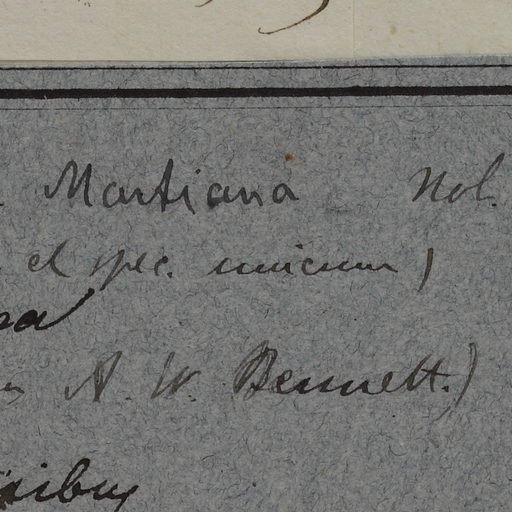 Martiana Nob.
et spec. unicum)
A. W. Bennett.)